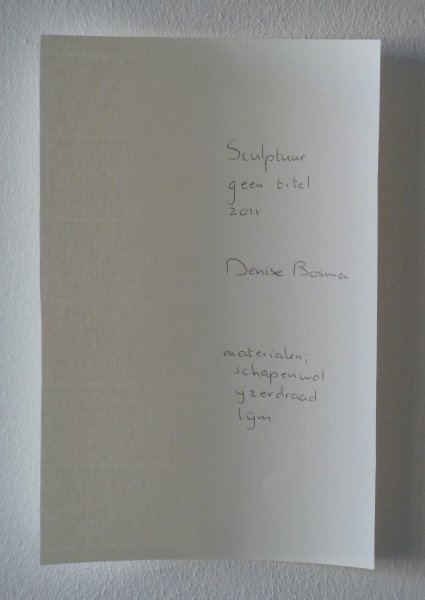 Sculptuur
geen titel
2011
Denise Bosma
materialen;
schapenwol
ijzerdraad
lijm